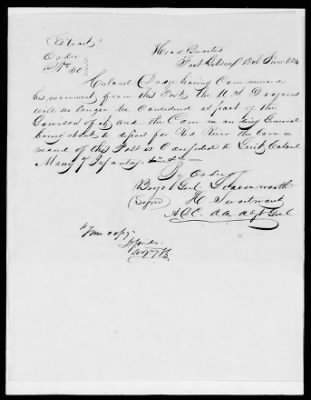 Order
No 30
Head Quarters
Fort Gibson 13th June 1834
Colonel Dodge having Commenced
his movement from this Post, the U.S. Dragoons
will no longer be Considered as part of the
Garrison of it, and the Commanding General
being about to depart for Red River the Com
mand of the Post is Confided to Lieut Colonel
Many 7 Infantry
By Order of
Brige Genl Leavenworth
(Signed) H. Swartwout
A.D.C. & A. A. Adjt Genl
True copy